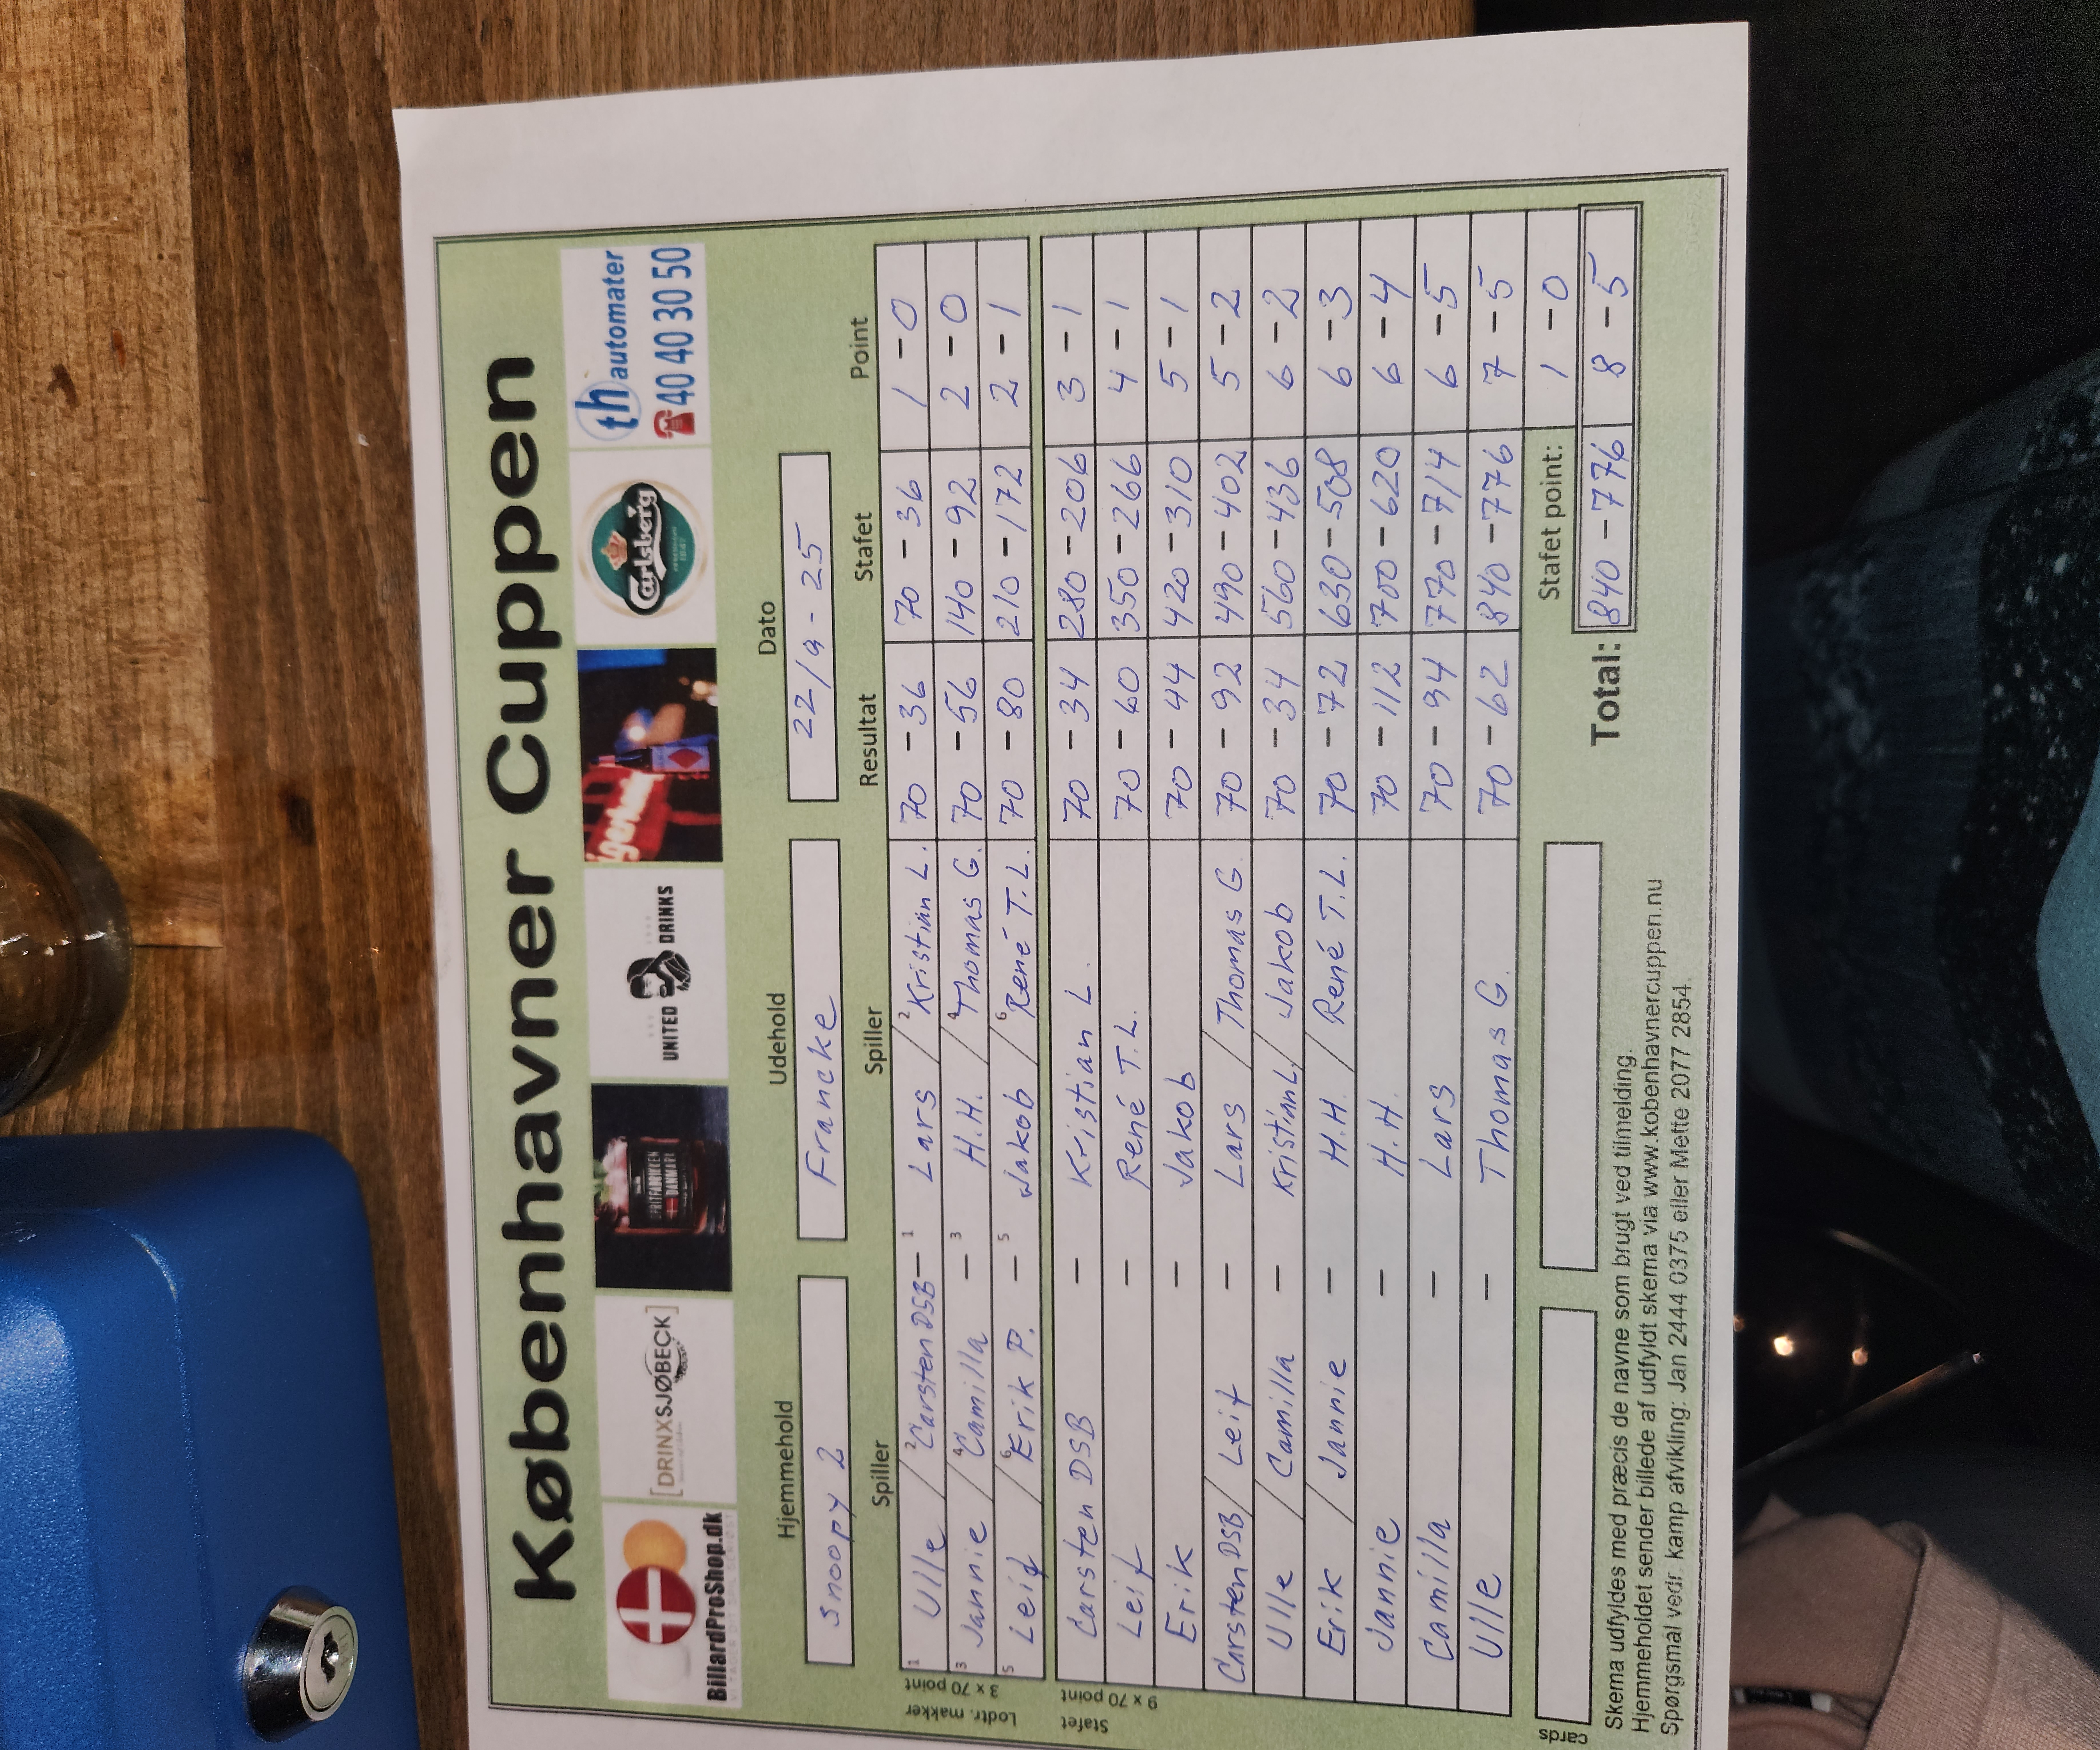 Københavner Cuppen
BillardProShop.dk
[DRINXSJØBECK]
SPRITFABRIKKEN DANMARK
UNITED DRINKS
Carlsberg
th automater
☎40 40 30 50
Hjemmehold Udehold Dato
Snoopy 2 Francke 22/9-25
Spiller Spiller Resultat Stafet Point
Lodtr. makker 3 x 70 point
1 Ulle / 2 Carsten DSB - 1 Lars / 2 Kristian L. 70 - 36 70 - 36 1 - 0
3 Jannie / 4 Camilla - 3 H.H. / 4 Thomas G. 70 - 56 140 - 92 2 - 0
5 Leif / 6 Erik P. - 5 Jakob / 6 René T.L. 70 - 80 210 - 172 2 - 1
Stafet 9 x 70 point
Carsten DSB - Kristian L. 70 - 34 280 - 206 3 - 1
Leif - René T.L. 70 - 60 350 - 266 4 - 1
Erik - Jakob 70 - 44 420 - 310 5 - 1
Carsten DSB / Leif - Lars / Thomas G. 70 - 92 490 - 402 5 - 2
Ulle / Camilla - Kristian L / Jakob 70 - 34 560 - 436 6 - 2
Erik / Jannie - H.H. / René T.L. 70 - 72 630 - 508 6 - 3
Jannie - H.H. 70 - 112 700 - 620 6 - 4
Camilla - Lars 70 - 94 770 - 714 6 - 5
Ulle - Thomas G. 70 - 62 840 - 776 7 - 5
cards
Stafet point: 1 - 0
Total: 840 - 776 8 - 5
Skema udfyldes med præcis de navne som brugt ved tilmelding.
Hjemmeholdet sender billede af udfyldt skema via www.kobenhavnercuppen.nu
Spørgsmål vedr. kamp afvikling: Jan 2444 0375 eller Mette 2077 2854.